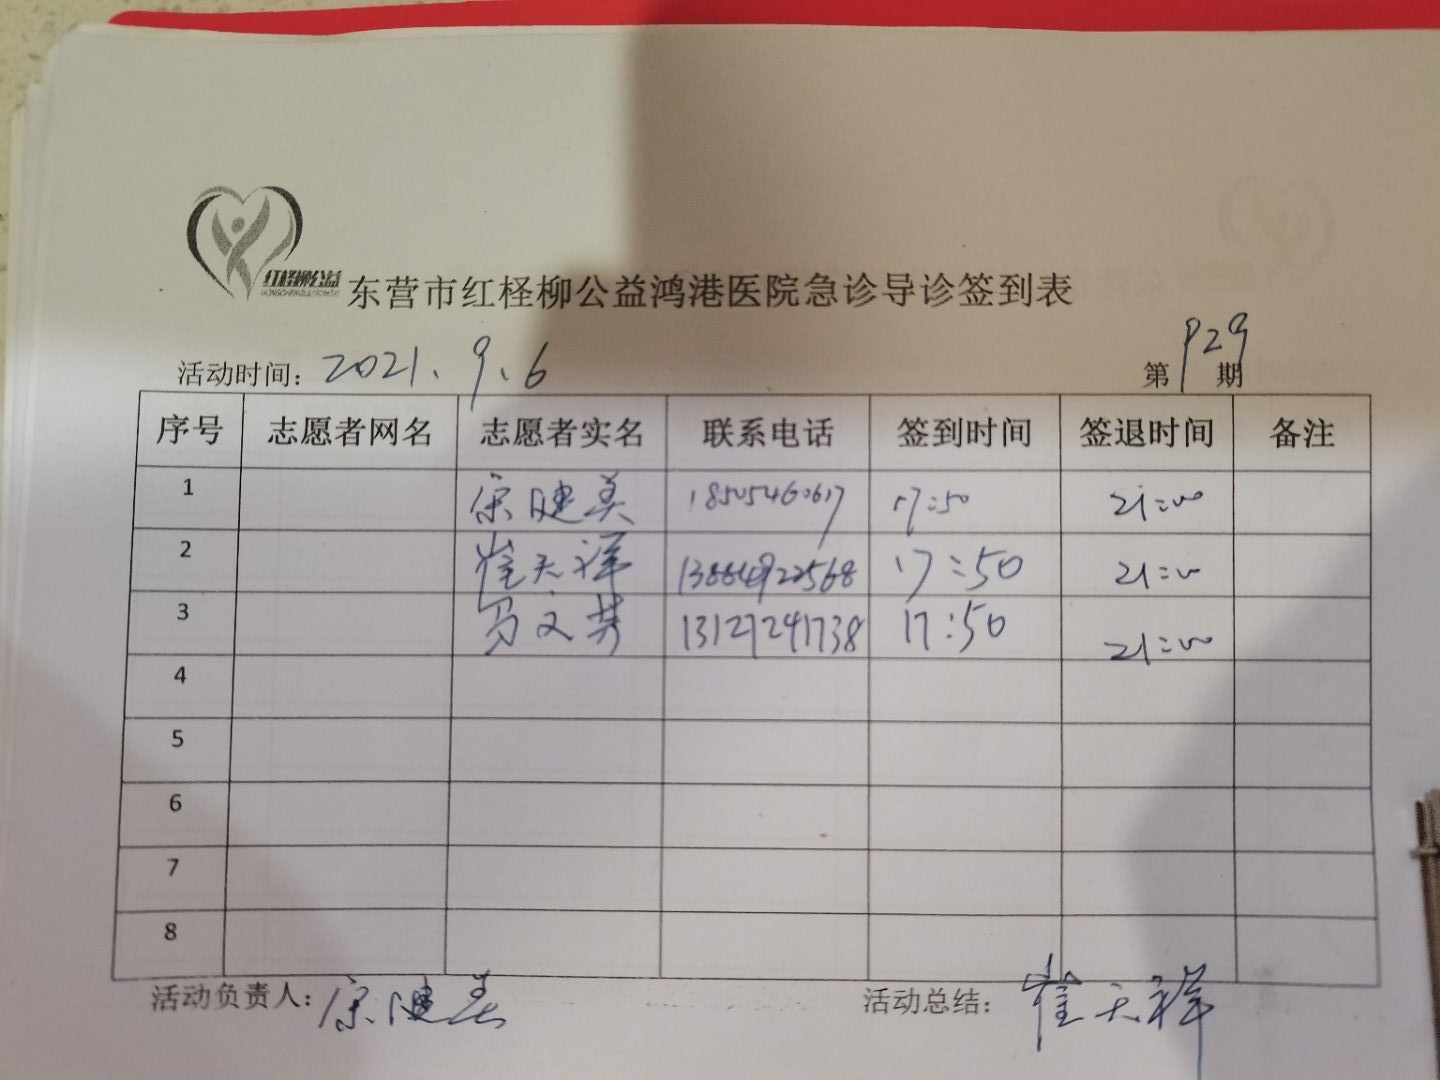 红柽柳公益
东营市红柽柳公益鸿港医院急诊导诊签到表
活动时间：2021.9.6 第929期
序号 志愿者网名 志愿者实名 联系电话 签到时间 签退时间 备注
1 宋健美 18505460617 17:50 21:00
2 崔天祥 13864922568 17:50 21:00
3 马文芳 13127241738 17:50 21:00
4
5
6
7
8
活动负责人：宋健美 活动总结：崔天祥